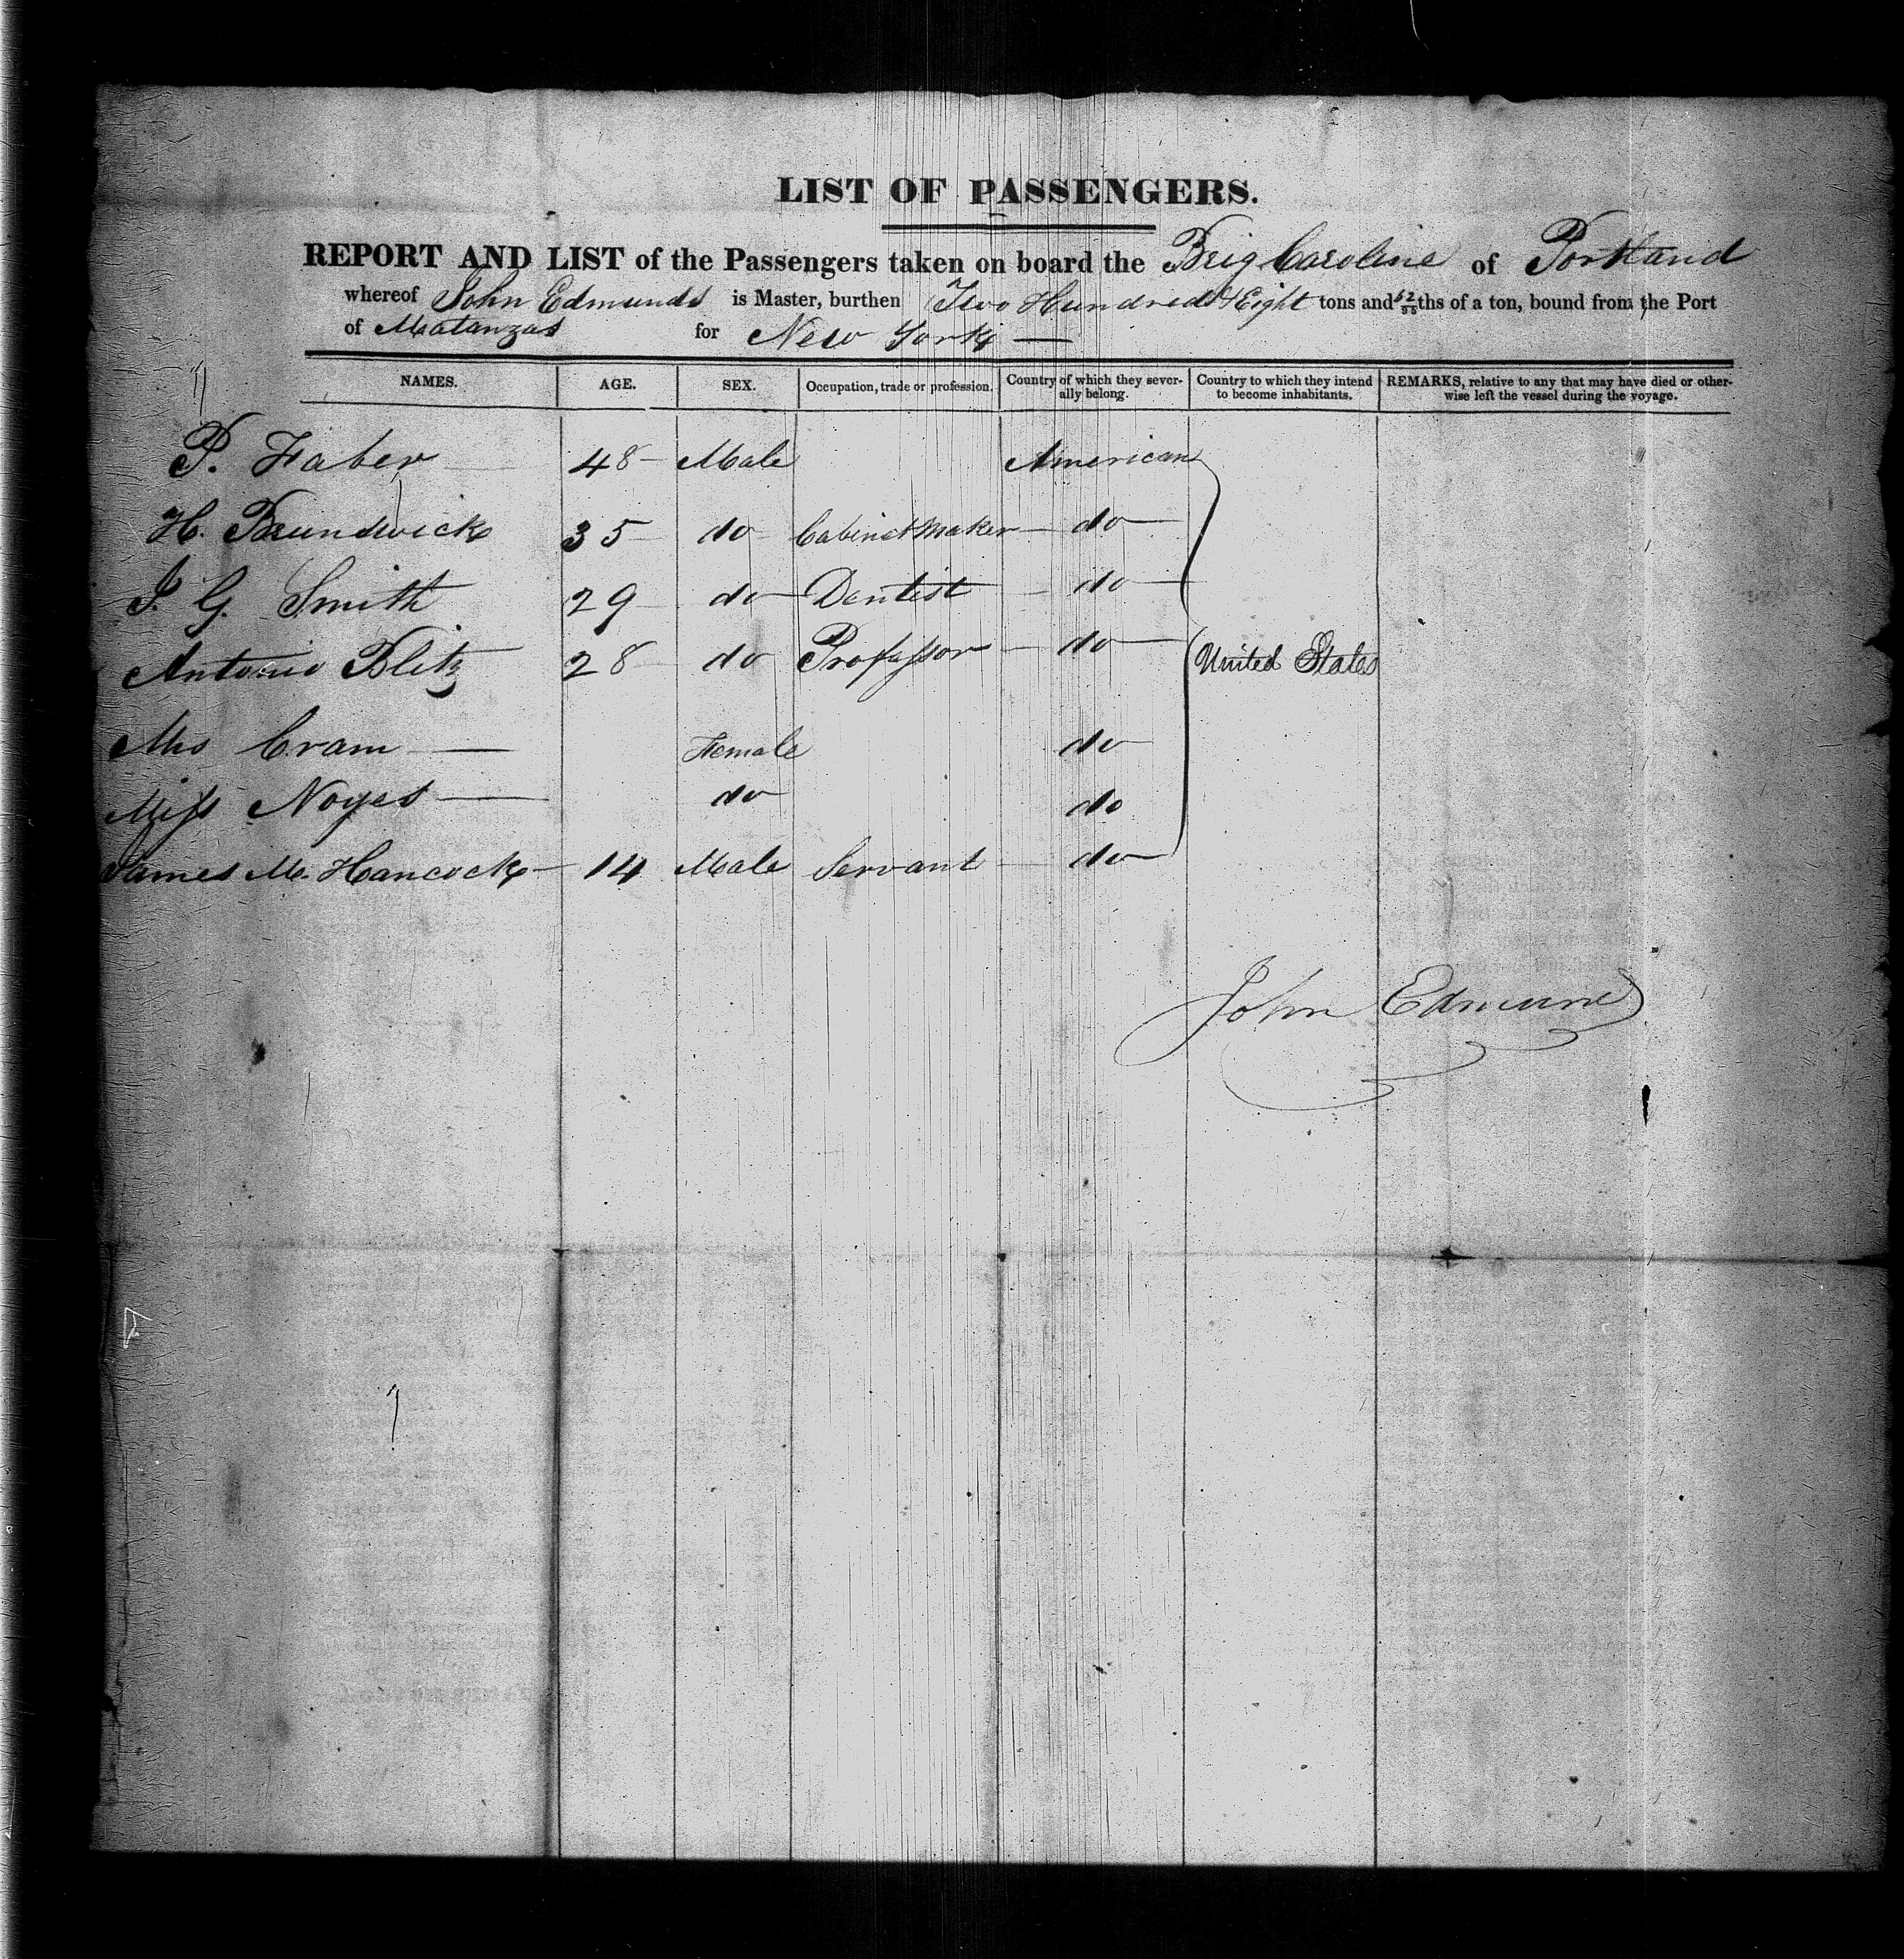 LIST OF PASSENGERS.
REPORT AND LIST of the Passengers taken on board the Brig Caroline of Portland
whereof John Edmunds is Master, burthen Two Hundred & Eight tons and 62/95ths of a ton, bound from the Port
of Matanzas for New York —
NAMES. AGE. SEX. Occupation, trade or profession. Country of which they severally belong. Country to which they intend to become inhabitants. REMARKS, relative to any that may have died or otherwise left the vessel during the voyage.
P. Faber 48 Male American
H. Brundwick 35 do Cabinet Maker do
J. G. Smith 29 do Dentist do
Antonio Blitz 28 do Professor do United States
Mrs Cram Female do
Miss Noyes do do
James M. Hancock 14 Male Servant do
John Edmund